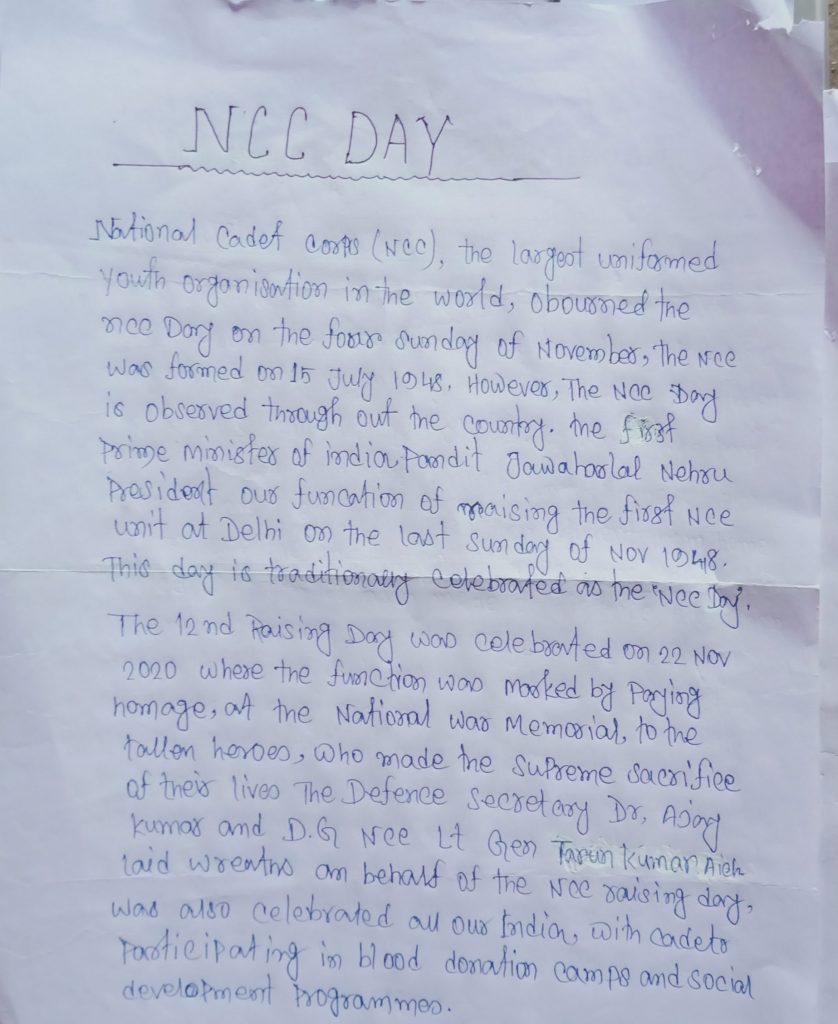 NCC DAY
National Cadet Corps (NCC), the largest uniformed
youth organisation in the world, obourned the
ncc Day on the four sunday of November, the NCC
was formed on 15 July 1948. However, The NCC Day
is observed through out the country. the first
Prime minister of india, Pandit Jawaharlal Nehru
President our funcation of raising the first NCC
unit at Delhi on the last sunday of Nov 1948.
This day is traditionaly celebrated as the 'NCC Day'.
The 12nd Raising Day was celebrated on 22 Nov
2020 where the function was marked by Paying
homage, at the National war Memorial, to the
fallen heroes, who made the supreme sacrifice
of their lives The Defence secretary Dr, Ajay
Kumar and D.G NCC Lt Gen Tarun Kumar Aich
laid wreaths on behalf of the NCC raising day,
was also celebrated all our India, with cadets
Participating in blood donation camps and social
development Programmes.